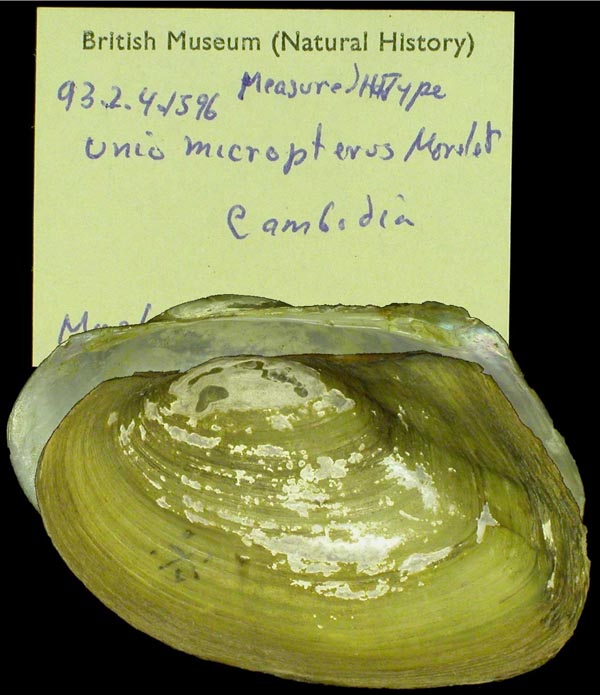 British Museum (Natural History)
93.2.4.1596 Measured Type
Unio micropterus Morelet
Cambodia